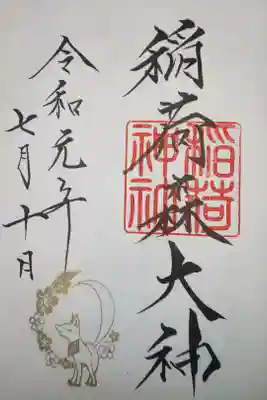 稲荷森大神
稲荷
神社
令和元年
七月十日